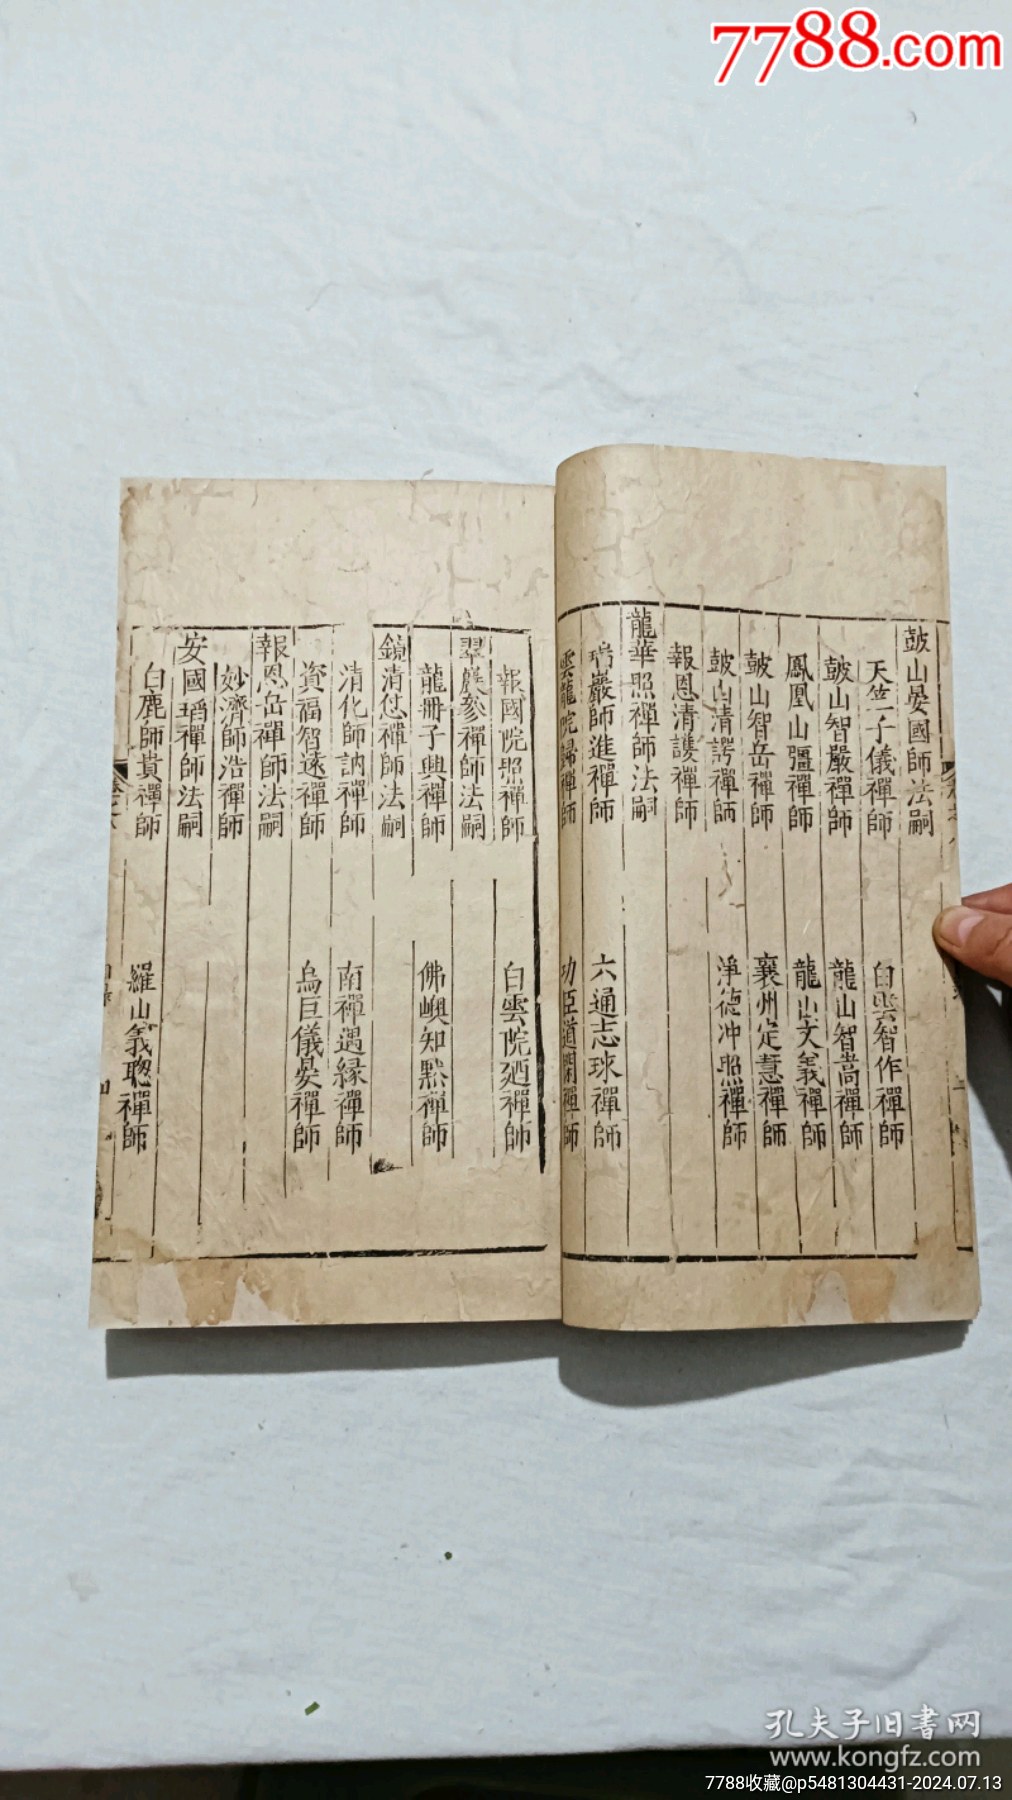 7788.com
鼓山晏國師法嗣
天竺子儀禪師 白雲智作禪師
鼓山智嚴禪師 龍山智嵩禪師
鳳凰山彊禪師 龍山文義禪師
鼓山智岳禪師 襄州定慧禪師
鼓山清諤禪師 淨德冲煦禪師
報恩清護禪師
龍華照禪師法嗣
瑞巖師進禪師 六通志球禪師
雲龍院歸禪師 功臣道閑禪師
報國院照禪師 白雲院廼禪師
翠巖參禪師法嗣
龍冊子興禪師 佛嶼知默禪師
鏡清怤禪師法嗣
清化師訥禪師 南禪遇緣禪師
資福智遠禪師 烏巨儀晏禪師
報恩岳禪師法嗣
妙濟師浩禪師
安國瑫禪師法嗣
白鹿師貴禪師 羅山義聰禪師
孔夫子旧書网
www.kongfz.com
7788收藏@p5481304431-2024.07.13